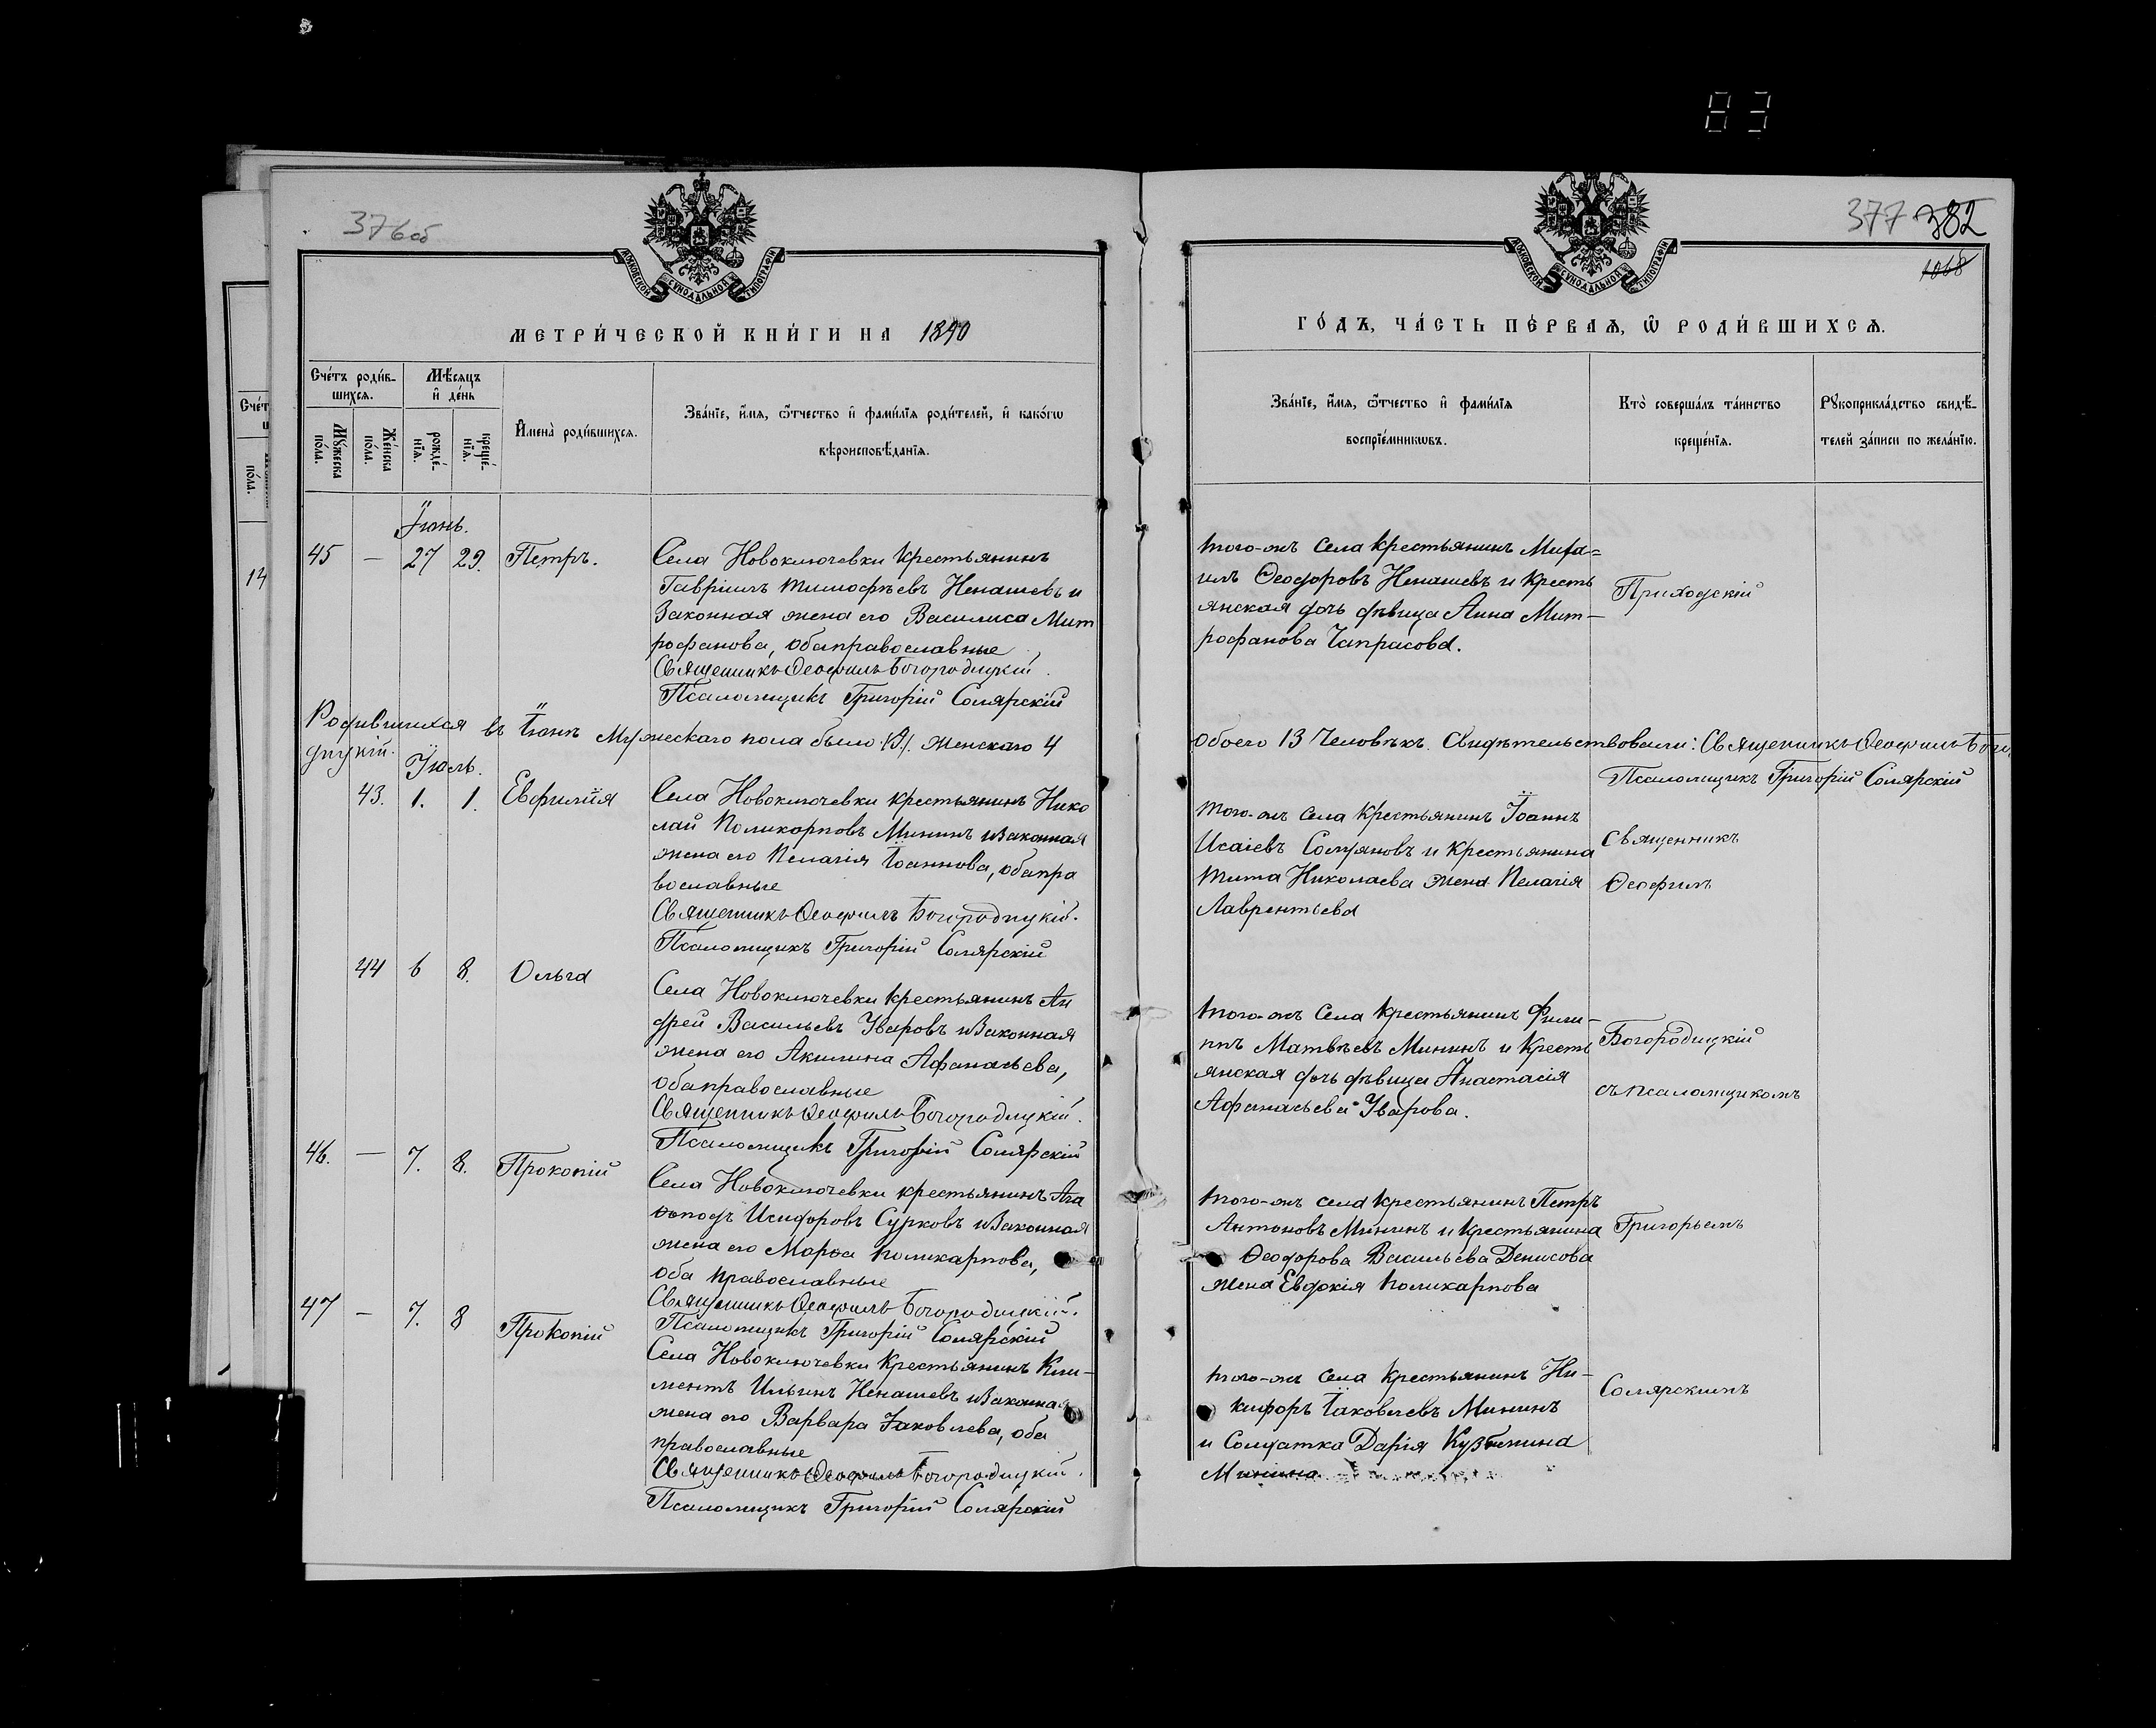 83
376об
МОСКОВСКОЙ СУНОДАЛЬНОЙ ТИПОГРАФІИ
МЕТРИ́ЧЕСКОЙ КНИ́ГИ НА 1890
Сче́тъ роди́в-
шихсѧ.
Мѣ́сяцъ
и҆ де́нь
Мꙋ́жеска
по́ла.
Же́нска
по́ла.
рожде́-
нїѧ.
креще́-
нїѧ.
И҆мена̀ роди́вшихсѧ.
Зва́нїе, и҆́мѧ, ѻ҆́тчество и҆ фами́лїѧ роди́телей, и҆ како́гѡ
вѣроисповѣ́данїѧ.
Іюнь.
45 — 27 29. Петръ.
Села Новоключевки крестьянинъ
Гавріилъ Тимофѣевъ Ненашевъ и
Законная жена его Василиса Мит
рофанова, оба православные
Священникъ Ѳеофилъ Богородицкій.
Псаломщикъ Григорій Солярскій
Родившихся въ Іюнѣ Мужескаго пола было Женскаго 4
дицкій.
Іюль.
43. 1. 1. Евфимія
Села Новоключевки крестьянинъ Нико
лай Поликарповъ Мининъ и Законная
жена его Пелагія Іоаннова, оба пра
вославные
Священникъ Ѳеофилъ Богородицкій.
Псаломщикъ Григорій Солярскій
44 6 8. Ольга
Села Новоключевки крестьянинъ Ан
дрей Васильевъ Уваровъ и Законная
жена его Акилина Афанасьева,
оба православные
Священникъ Ѳеофилъ Богородицкій.
Псаломщикъ Григорій Солярскій
46. — 7. 8. Прокопій
Села Новоключевки крестьянинъ Ага
поподъ Исидоровъ Сурковъ и Законная
жена его Марѳа Поликарпова,
оба православные
Священникъ Ѳеофилъ Богородицкій.
Псаломщикъ Григорій Солярскій
47 — 7. 8 Прокопій
Села Новоключевки Крестьянинъ Кли-
ментъ Ильинъ Ненашевъ и Законная
жена его Варвара Іаковлева, оба
православные
Священникъ Ѳеофилъ Богородицкій.
Псаломщикъ Григорій Солярскій
377 382
1068
МОСКОВСКОЙ СУНОДАЛЬНОЙ ТИПОГРАФІИ
ГО́ДЪ, ЧА́СТЬ ПЕ́РВАѦ, Ѡ҆ РОДИ́ВШИХСѦ.
Зва́нїе, и҆́мѧ, ѻ҆́тчество и҆ фами́лїѧ
воспрїе́мникѡвъ.
Кто̀ соверша́лъ та́инство
креще́нїѧ.
Рꙋкоприкла́дство свидѣ́-
телей за́писи по жела́нїю.
того-жъ села крестьянинъ Миха=
илъ Ѳеодоровъ Ненашевъ и кресть
янская дочь дѣвица Анна Мит-
рофанова Чапрасова.
Приходскій
обоего 13 Человѣкъ. Свидѣтельствовали: Священникъ Ѳеофилъ Бого
Псаломщикъ Григорій Солярскій
того-жъ села крестьянинъ Іоаннъ
Исаіевъ и крестьянина
Тита Николаева жена Пелагія
Лаврентьева
Священникъ
Ѳеофилъ
того-жъ села крестьянинъ Фили-
ппъ Матвѣевъ Мининъ и кресть
янская дочь дѣвица Анастасія
Афанасьева Уварова.
Богородицкій
съ псаломщикомъ
того-жъ села крестьянинъ Петръ
Антоновъ Мининъ и крестьянина
Ѳеодорова Васильева Денисова
жена Евдокія Поликарпова
Григорьемъ
того-жъ села крестьянинъ Ни-
кифоръ Іаковлевъ Мининъ
и Солдатка Дарія Кузьмина
Минина
Солярскимъ
Сче́т
по́ла.
14